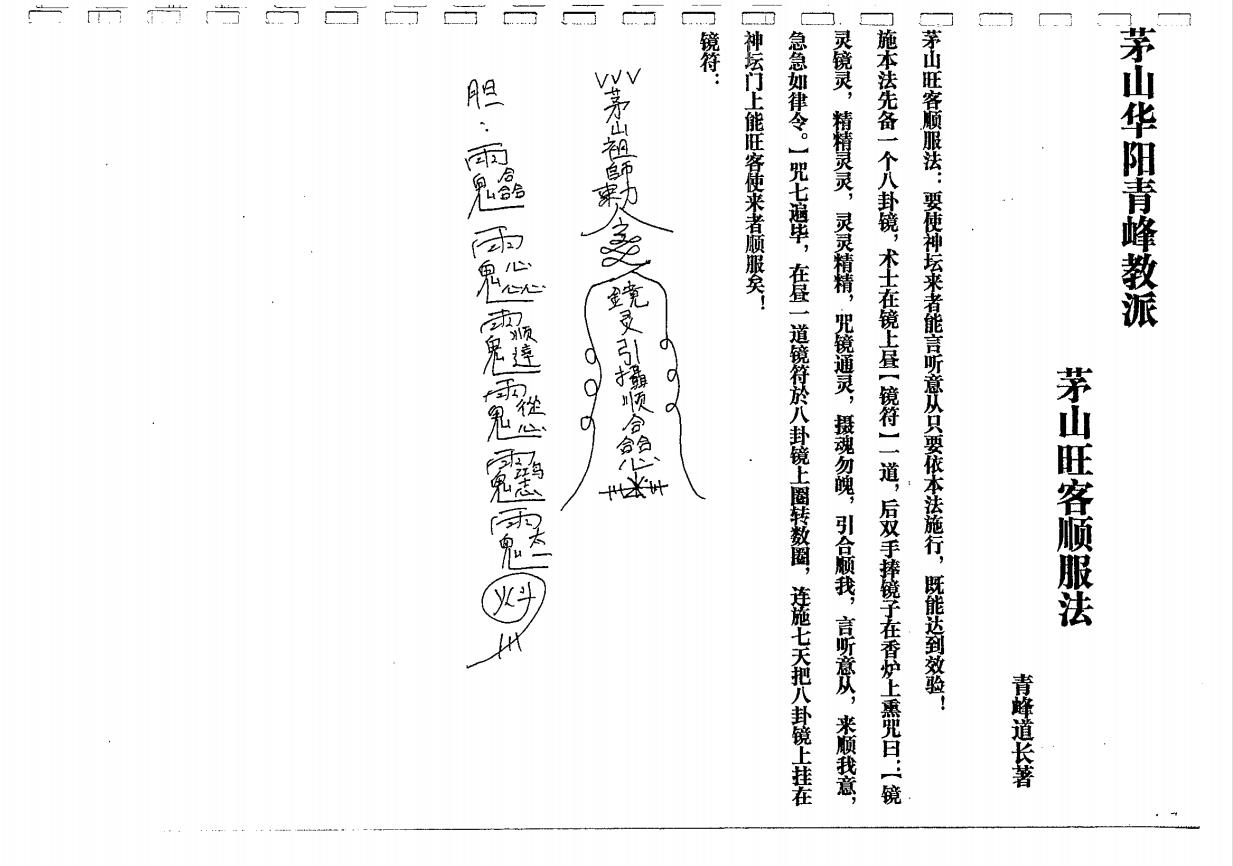 茅山华阳青峰教派
茅山旺客顺服法
青峰道长著
茅山旺客顺服法：要使神坛来者能言听意从只要依本法施行，既能达到效验！
施本法先备一个八卦镜，术士在镜上昼【镜符】一道，后双手捧镜子在香炉上熏咒曰：【镜
灵镜灵，精精灵灵，灵灵精精，咒镜通灵，摄魂勿魄，引合顺我，言听意从，来顺我意，
急急如律令。】咒七遍毕，在昼一道镜符於八卦镜上圈转数圈，连施七天把八卦镜上挂在
神坛门上能旺客使来者顺服矣！
镜符：
茅山祖師
鏡灵引攝顺合合合心
胆：